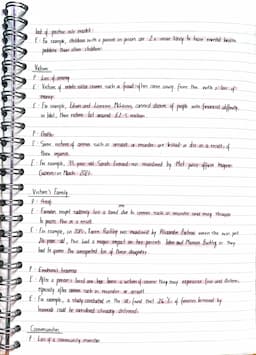 lack of positive role models
E · For example, children with a parent in prison are 2x more likely to have mental health
problems than other children
Victim
P · Loss of money
E · Victims of white collar crimes such as fraud often come away from the with a loss of
E · For example, Edwin and Lorraine McLaren, conned dozens of people with financial difficulty
in total, their victims lost around £1.6 million
P · Death
E · Some victims of crimes such as assault or murder are killed or die as a result of
their injuries
E · For example, 33 year old Sarah Everard was murdered by Met police officer Wayne
Couzens in March 2021.
Victim's Family
P · Grief
E · Families might suddenly lose a loved one to crimes such as murder and may struggle
to process this as a result
E · For example, in 2018, was murdered by Alexander when she was just
26 year old, this had a major impact on her parents and as they
had to grieve the unexpected loss of their daughter
P · Emotional trauma
E · After a person's loved one has been a victim of crime they may experience fear and distress
especially after crimes such as murder or assault
E · For example, a study conducted in the US found that of families bereaved by
homicide could be considered clinically distressed.
Communities
P · Loss of a community member